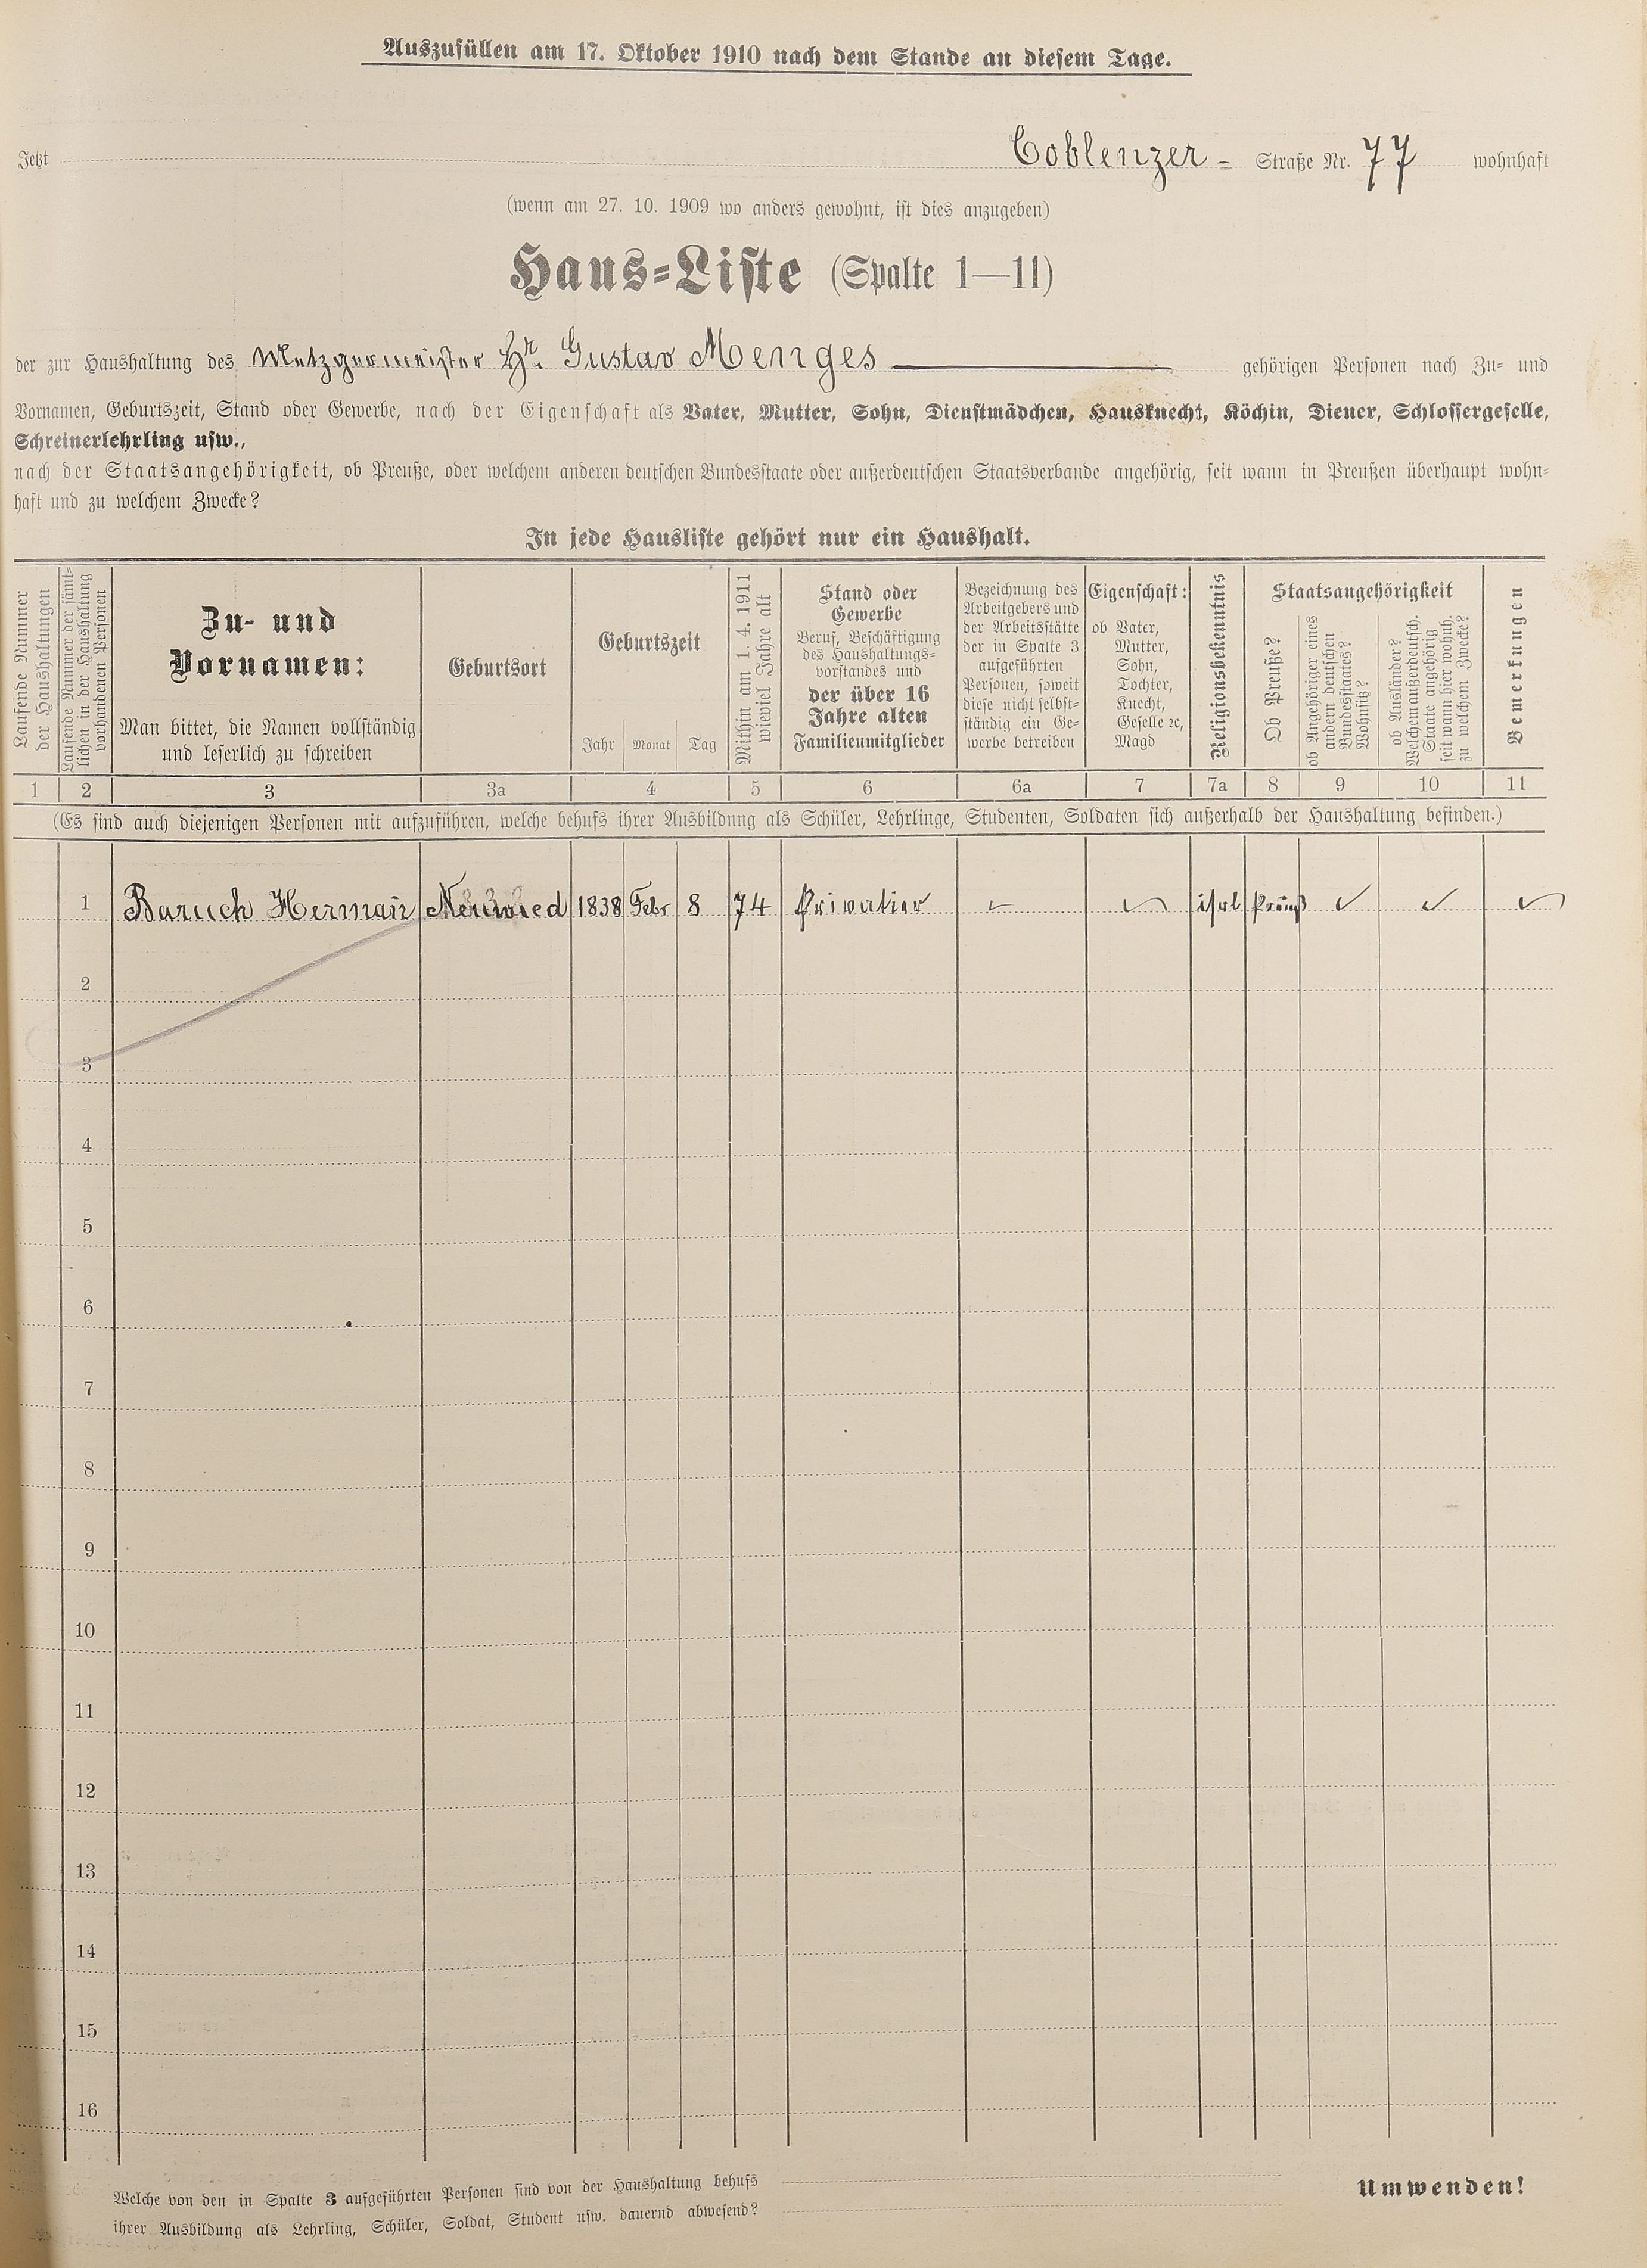 Auszufüllen am 17. Oktober 1910 nach dem Stande an diesem Tage.
Jetzt Coblenzer- Straße Nr. 77 wohnhaft
(wenn am 27. 10. 1909 wo anders gewohnt, ist dies anzugeben)
Haus-Liste (Spalte 1—11)
der zur Haushaltung des Metzgermeister Hr. Gustav Menges gehörigen Personen nach Zu- und
Vornamen, Geburtszeit, Stand oder Gewerbe, nach der Eigenschaft als Vater, Mutter, Sohn, Dienstmädchen, Hausknecht, Köchin, Diener, Schlossergeselle,
Schreinerlehrling usw.,
nach der Staatsangehörigkeit, ob Preuße, oder welchem anderen deutschen Bundesstaate oder außerdeutschen Staatsverbande angehörig, seit wann in Preußen überhaupt wohn-
haft und zu welchem Zwecke?
In jede Hausliste gehört nur ein Haushalt.
Laufende Nummer
der Haushaltungen
Laufende Nummer der sämt-
lichen in der Haushaltung
vorhandenen Personen
Zu- und
Vornamen:
Man bittet, die Namen vollständig
und leserlich zu schreiben
Geburtsort
Geburtszeit
Jahr Monat Tag
Mithin am 1. 4. 1911
wieviel Jahre alt
Stand oder
Gewerbe
Beruf, Beschäftigung
des Haushaltungs-
vorstandes und
der über 16
Jahre alten
Familienmitglieder
Bezeichnung des
Arbeitgebers und
der Arbeitsstätte
der in Spalte 3
aufgeführten
Personen, soweit
diese nicht selbst-
ständig ein Ge-
werbe betreiben
Eigenschaft:
ob Vater,
Mutter,
Sohn,
Tochter,
Knecht,
Geselle ꝛc,
Magd
Religionsbekenntnis
Staatsangehörigkeit
Ob Preuße?
ob Angehöriger eines
andern deutschen
Bundesstaates?
Wohnsitz?
ob Ausländer?
Welchem außerdeutsch.
Staate angehörig
seit wann hier wohnh.
zu welchem Zwecke?
Bemerkungen
1 2 3 3a 4 5 6 6a 7 7a 8 9 10 11
(Es sind auch diejenigen Personen mit aufzuführen, welche behufs ihrer Ausbildung als Schüler, Lehrlinge, Studenten, Soldaten sich außerhalb der Haushaltung befinden.)
1 Baruch Hermañ Neuwied 1838 Febr 8 74 Privatier isrl Preuß
2
3
4
5
6
7
8
9
10
11
12
13
14
15
16
Welche von den in Spalte 3 aufgeführten Personen sind von der Haushaltung behufs
ihrer Ausbildung als Lehrling, Schüler, Soldat, Student usw. dauernd abwesend?
Umwenden!